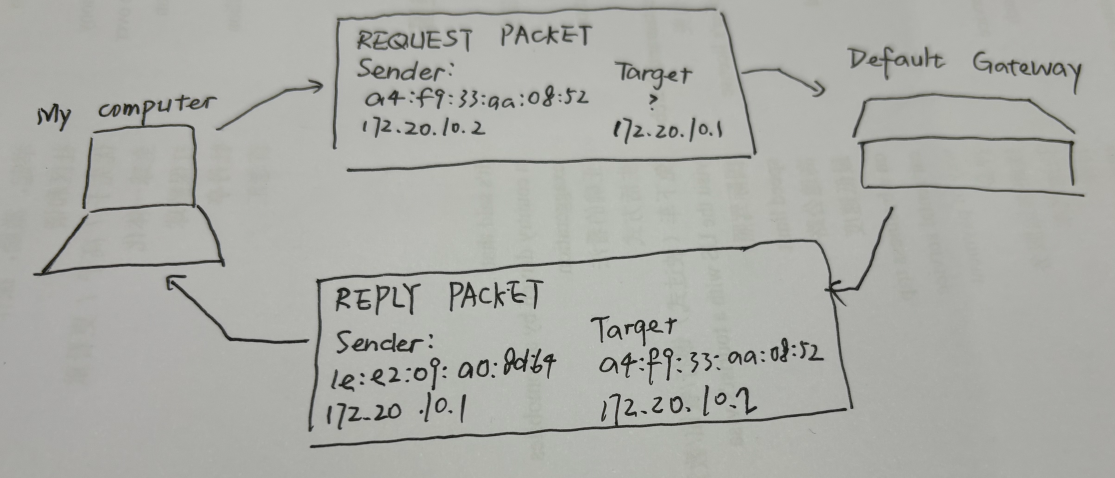 My computer
REQUEST PACKET
Sender:
a4:f9:33:aa:08:52
172.20.10.2
Target
?
172.20.10.1
Default Gateway
REPLY PACKET
Sender:
1e:e2:09:a0:8d:64
172.20.10.1
Target
a4:f9:33:aa:08:52
172.20.10.2